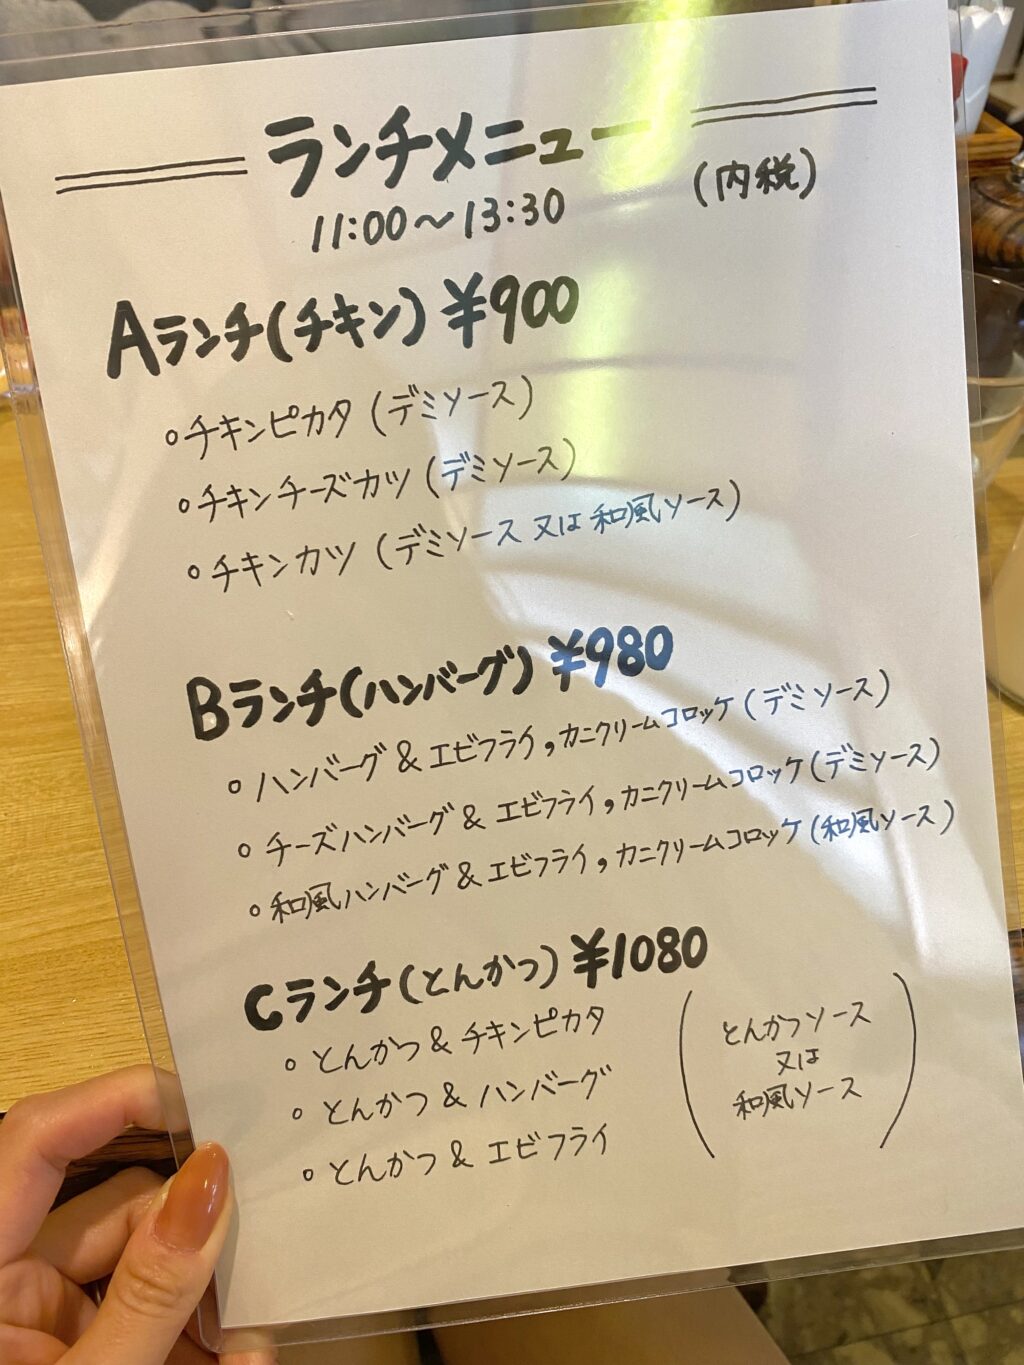 ランチメニュー
(内税)
11:00〜13:30
Aランチ(チキン) ¥900
○チキンピカタ (デミソース)
○チキンチーズカツ (デミソース)
○チキンカツ (デミソース 又は 和風ソース)
Bランチ(ハンバーグ) ¥980
○ハンバーグ & エビフライ,カニクリームコロッケ (デミソース)
○チーズハンバーグ & エビフライ,カニクリームコロッケ(デミソース)
○和風ハンバーグ & エビフライ,カニクリームコロッケ(和風ソース)
Cランチ(とんかつ) ¥1080
○とんかつ & チキンピカタ
○とんかつ & ハンバーグ
○とんかつ & エビフライ
(とんかつソース
又は
和風ソース)